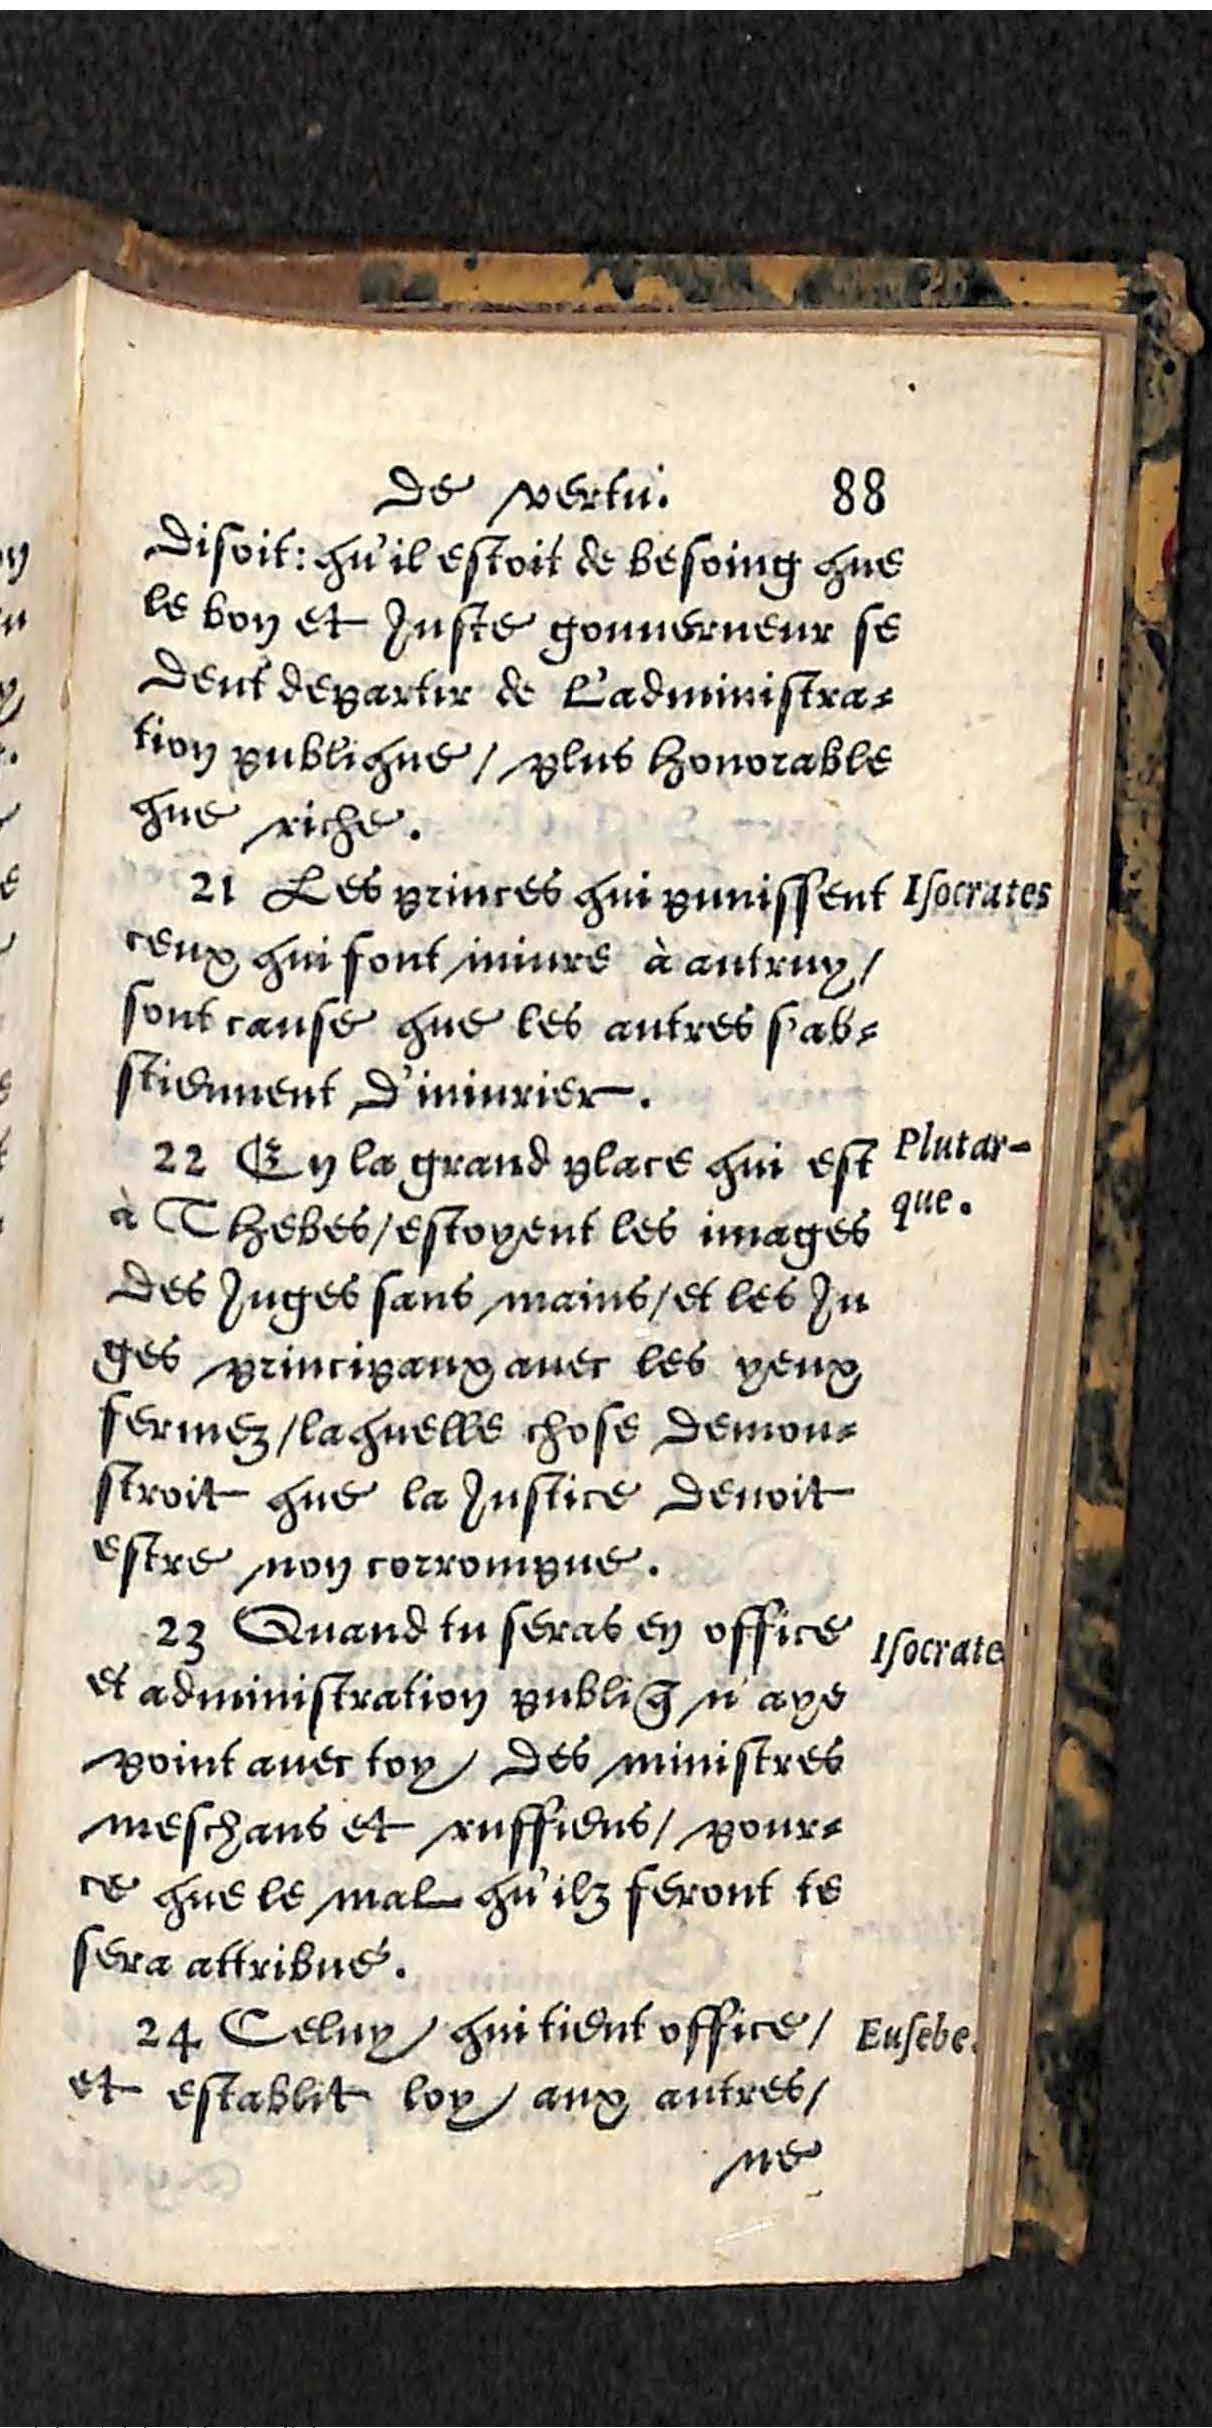 De vertu. 88
disoit: qu'il estoit de besoing que
le bon et Juste gouuerneur se
deut departir de l'administra-
tion publique / plus honorable
que riche.
21 Les princes qui punissent Isocrates
ceux qui font iniure à autruy /
sont cause que les autres s'ab-
stiennent d'iniurier.
22 En la grand place qui est Plutar-
à Thebes / estoyent les images que.
des Juges sans mains / et les Ju
ges principaux auec les yeux
fermez / laquelle chose demon-
stroit que la Justice deuoit
estre non corrompue.
23 Quand tu seras en office Isocrate
et administration publiq̃ n'aye
point auec toy / des ministres
meschans et ruffiens / pour-
ce que le mal qu'ilz feront te
sera attribué.
24 Celuy / qui tient office / Eusebe.
et establit loy / aux autres /
ne